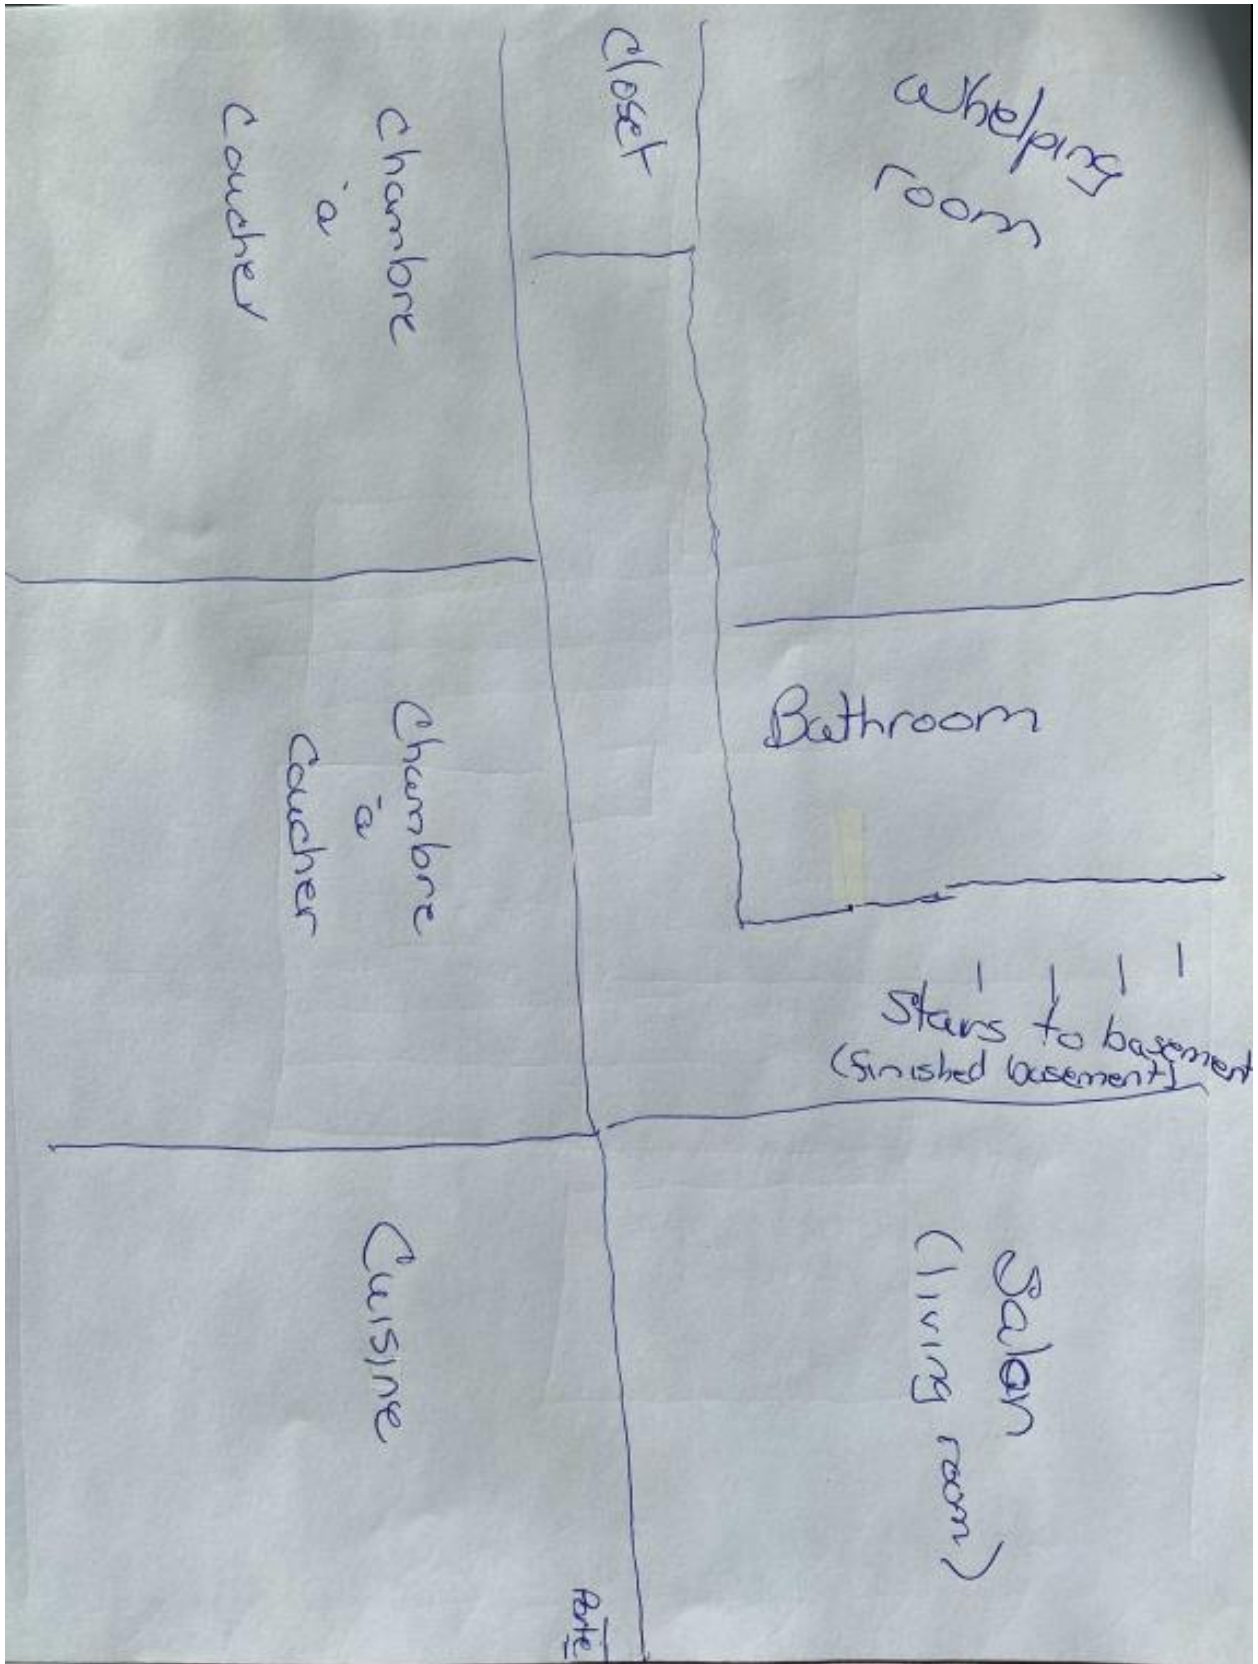 Closet
Whelping
room
Chambre
à
Coucher
Bathroom
Chambre
à
Coucher
Stairs to basement
(finished basement)
Cuisine
Salon
(living room)
Porte